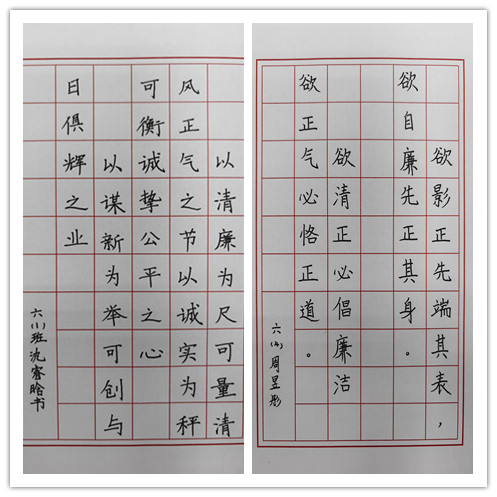 以清廉为尺可量清
风正气之节以诚实为秤
可衡诚挚公平之心
以谋新为举可创与
日俱辉之业
六(1)班沈睿晗书
欲影正先端其表，
欲自廉先正其身。
欲清正必倡廉洁
欲正气必恪正道。
六(4)周昱彤